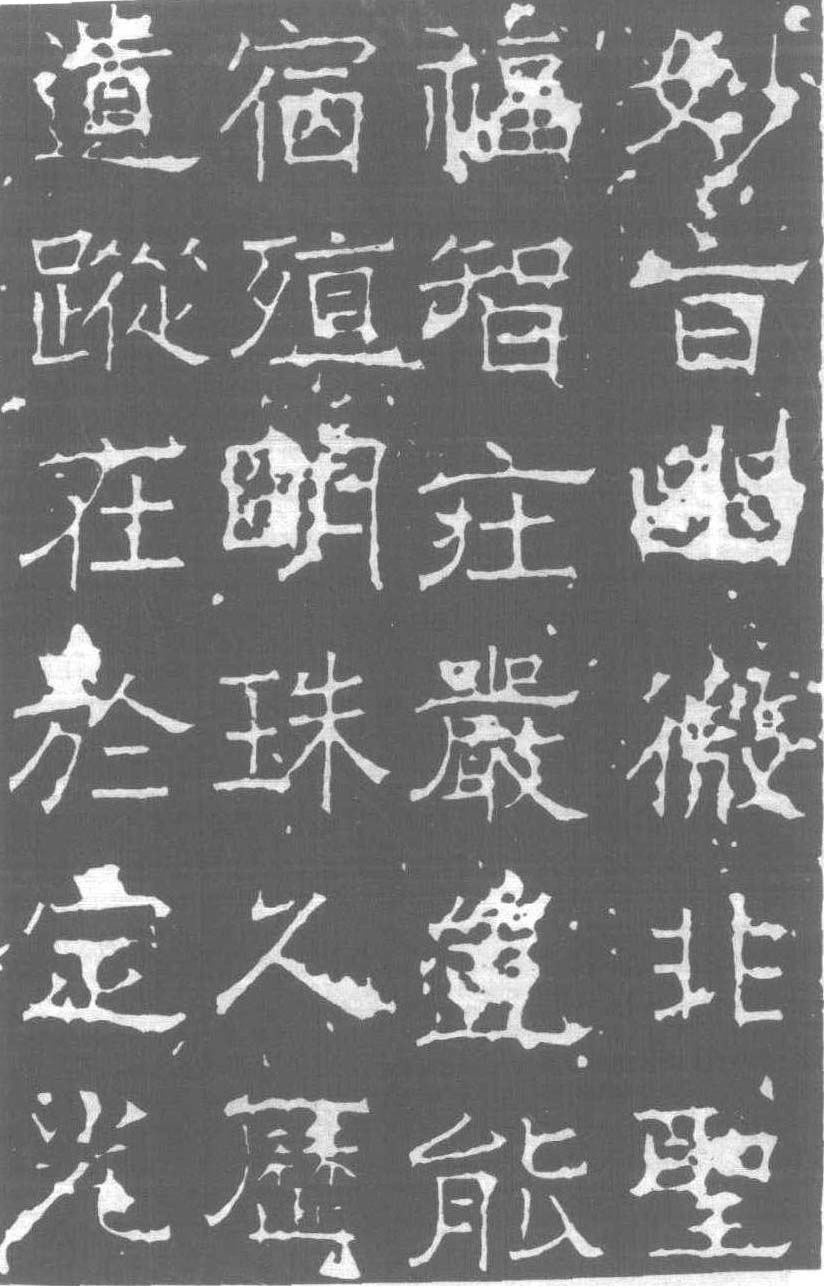 妙旨幽微非聖
福智莊嚴豈能
宿殖明珠久歷
遺蹤在於定光